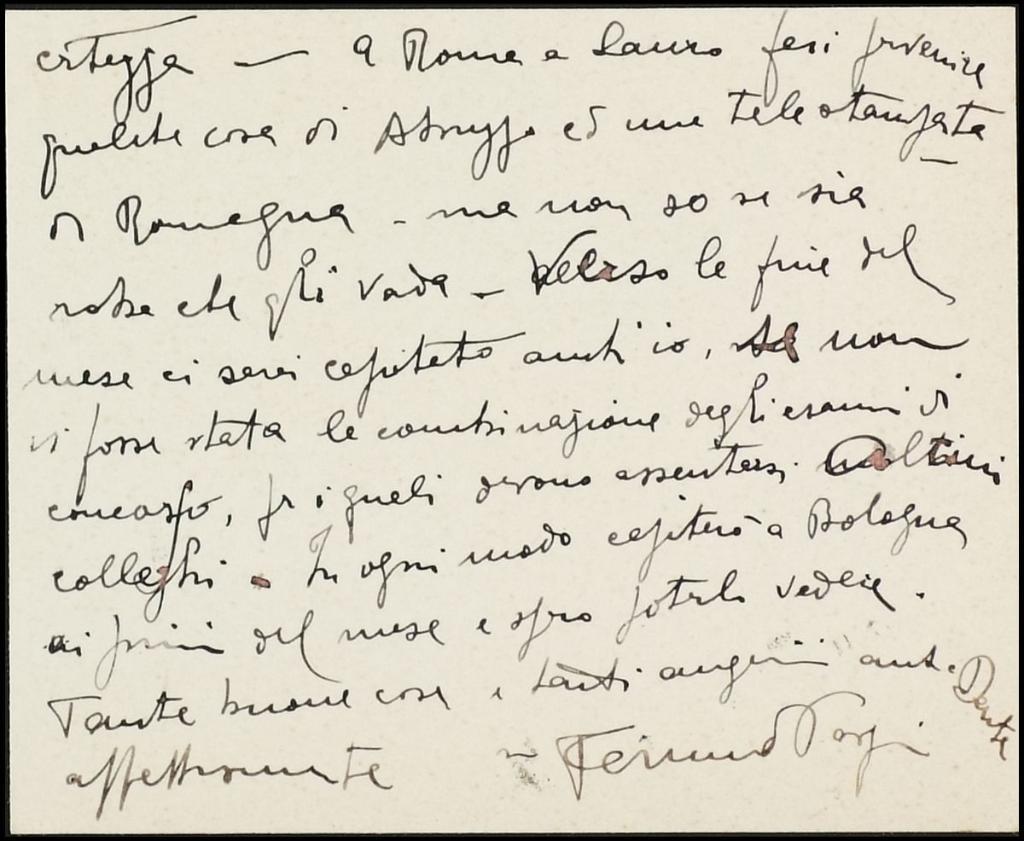 certezza — A Roma a Lauro feci pervenire
qualche cosa di Abruzzo ed una tela stampata
di Romagna - ma non so se sia
roba che gli vada - Verso la fine del
mese ci sarei capitato anch'io, se non
vi fosse stata la combinazione degli esami di
concorso, per i quali devono assentarsi
colleghi - In ogni modo capiterò a Bologna
ai primi del mese e spero poterla vedere.
Tante buone cose e tanti auguri anche
affettuosamente